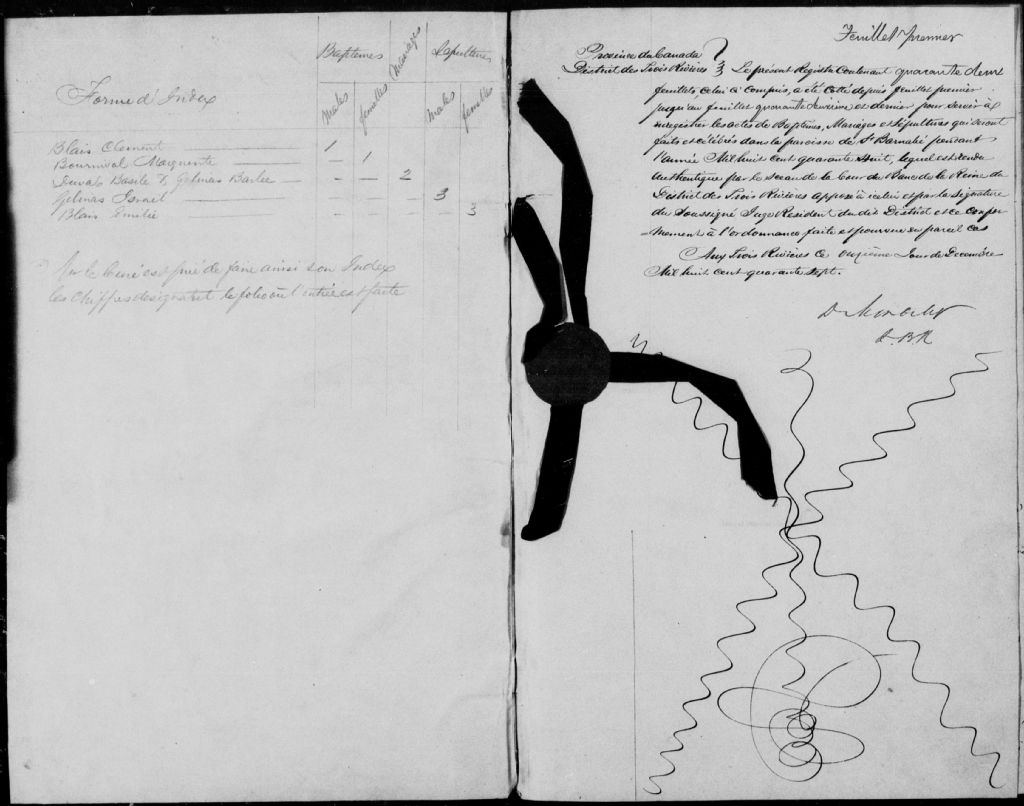 Baptemes Mariages Sepultures
Forme d'Index
males femelles males femelles
Blais Clement 1
Bournival Marguerite — 1
Duval Basile & Gelinas — — 2
Gelinas Israel — — — 3
Blais Emilie — — — — 3
Mr le Curé est prié de faire ainsi son Index
les Chiffres designant le folio où l'entrée est faite
Feuillet premier
Province du Canada
District des Trois Rivières } Le présent Registre Contenant quarante deux
feuillets, celui ci compris, a été Cotté depuis feuillet premier
jusqu'au feuillet quarante deuxième et dernier pour servir à
enregistrer les actes de Baptemes, Mariages et Sépultures qui seront
faits et célébrés dans la paroisse de St Barnabé pendant
l'année Mil huit Cent quarante huit, lequel est rendu
Authentique par le Sceau de la Cour du Banc de la Reine du
District des Trois Rivières apposé à icelui et par la Signature
du Soussigné Juge Resident du dit District et ce Confor
-mement à l'ordonnance faite et pourvue en pareil cas
Aux Trois Rivières ce onzième Jour de Decembre
Mil huit cent quarante Sept.
J. B. R